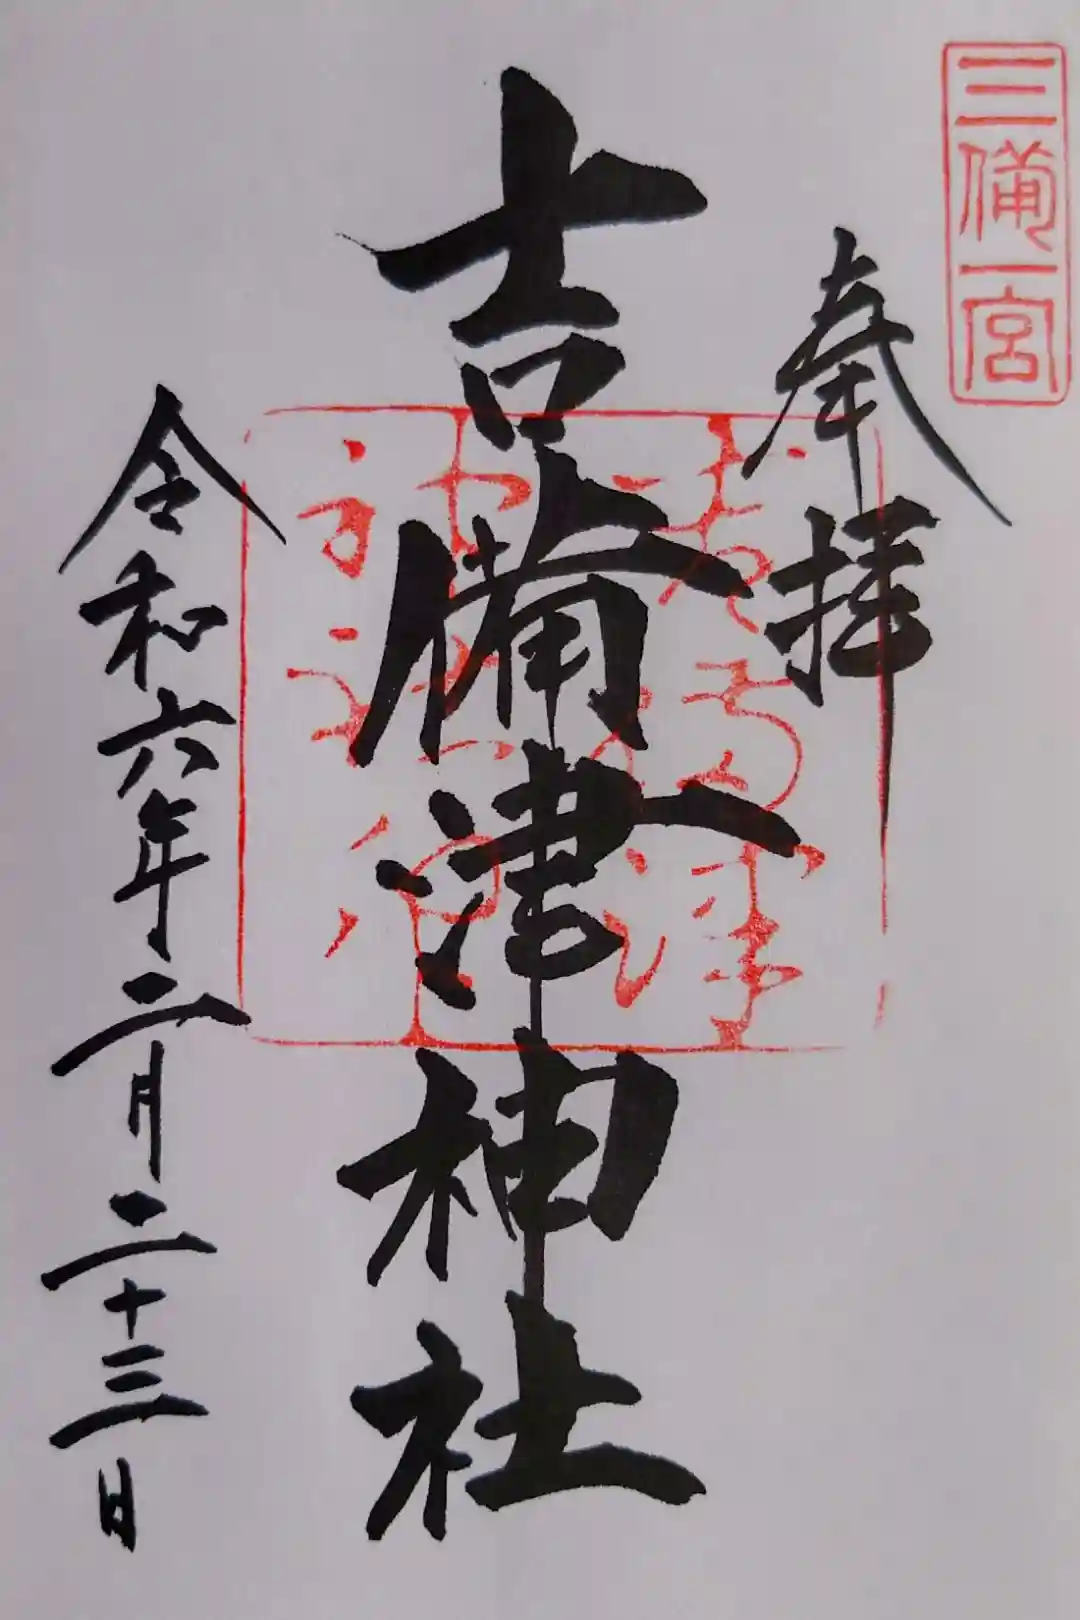 三備一宮
奉拝
吉備津神社
令和六年二月二十三日